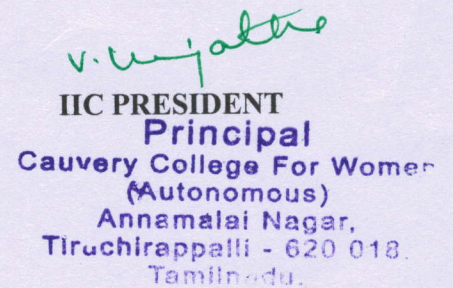 V. Sujatha
IIC PRESIDENT
Principal
Cauvery College For Women
(Autonomous)
Annamalai Nagar,
Tiruchirappalli - 620 018.
Tamilnadu.